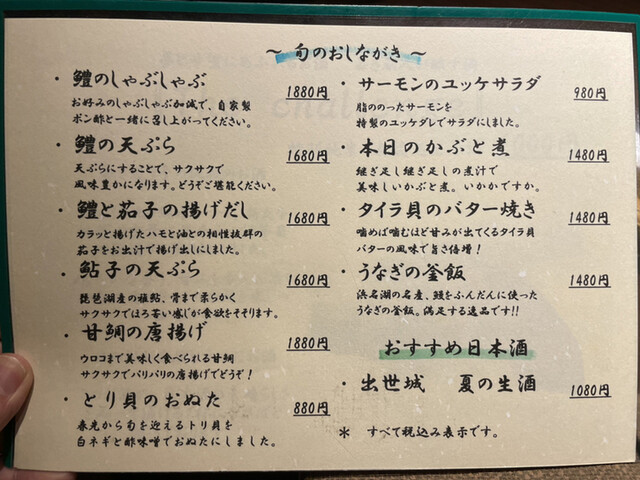 ～ 旬のおしながき ～
・鱧のしゃぶしゃぶ 1880円
お好みのしゃぶしゃぶ加減で、自家製
ポン酢と一緒に召し上がってください。
・鱧の天ぷら 1680円
天ぷらにすることで、サクサクで
風味豊かになります。どうぞご堪能ください。
・鱧と茄子の揚げだし 1680円
カラッと揚げたハモと油との相性抜群の
茄子をお出汁で揚げ出しにしました。
・鮎子の天ぷら 1680円
琵琶湖産の稚鮎、骨まで柔らかく
サクサクでほろ苦い感じが食欲をそそります。
・甘鯛の唐揚げ 1880円
ウロコまで美味しく食べられる甘鯛
サクサクでパリパリの唐揚げでどうぞ！
・とり貝のおぬた 880円
春先から旬を迎えるトリ貝を
白ネギと酢味噌でおぬたにしました。
・サーモンのユッケサラダ 980円
脂ののったサーモンを
特製のユッケダレでサラダにしました。
・本日のかぶと煮 1480円
継ぎ足し継ぎ足しの煮汁で
美味しいかぶと煮。いかかですか。
・タイラ貝のバター焼き 1480円
噛めば噛むほど甘みが出てくるタイラ貝
バターの風味で旨さ倍増！
・うなぎの釜飯 1480円
浜名湖の名産、鰻をふんだんに使った
うなぎの釜飯。満足する逸品です!!
おすすめ日本酒
・出世城 夏の生酒 1080円
＊ すべて税込み表示です。